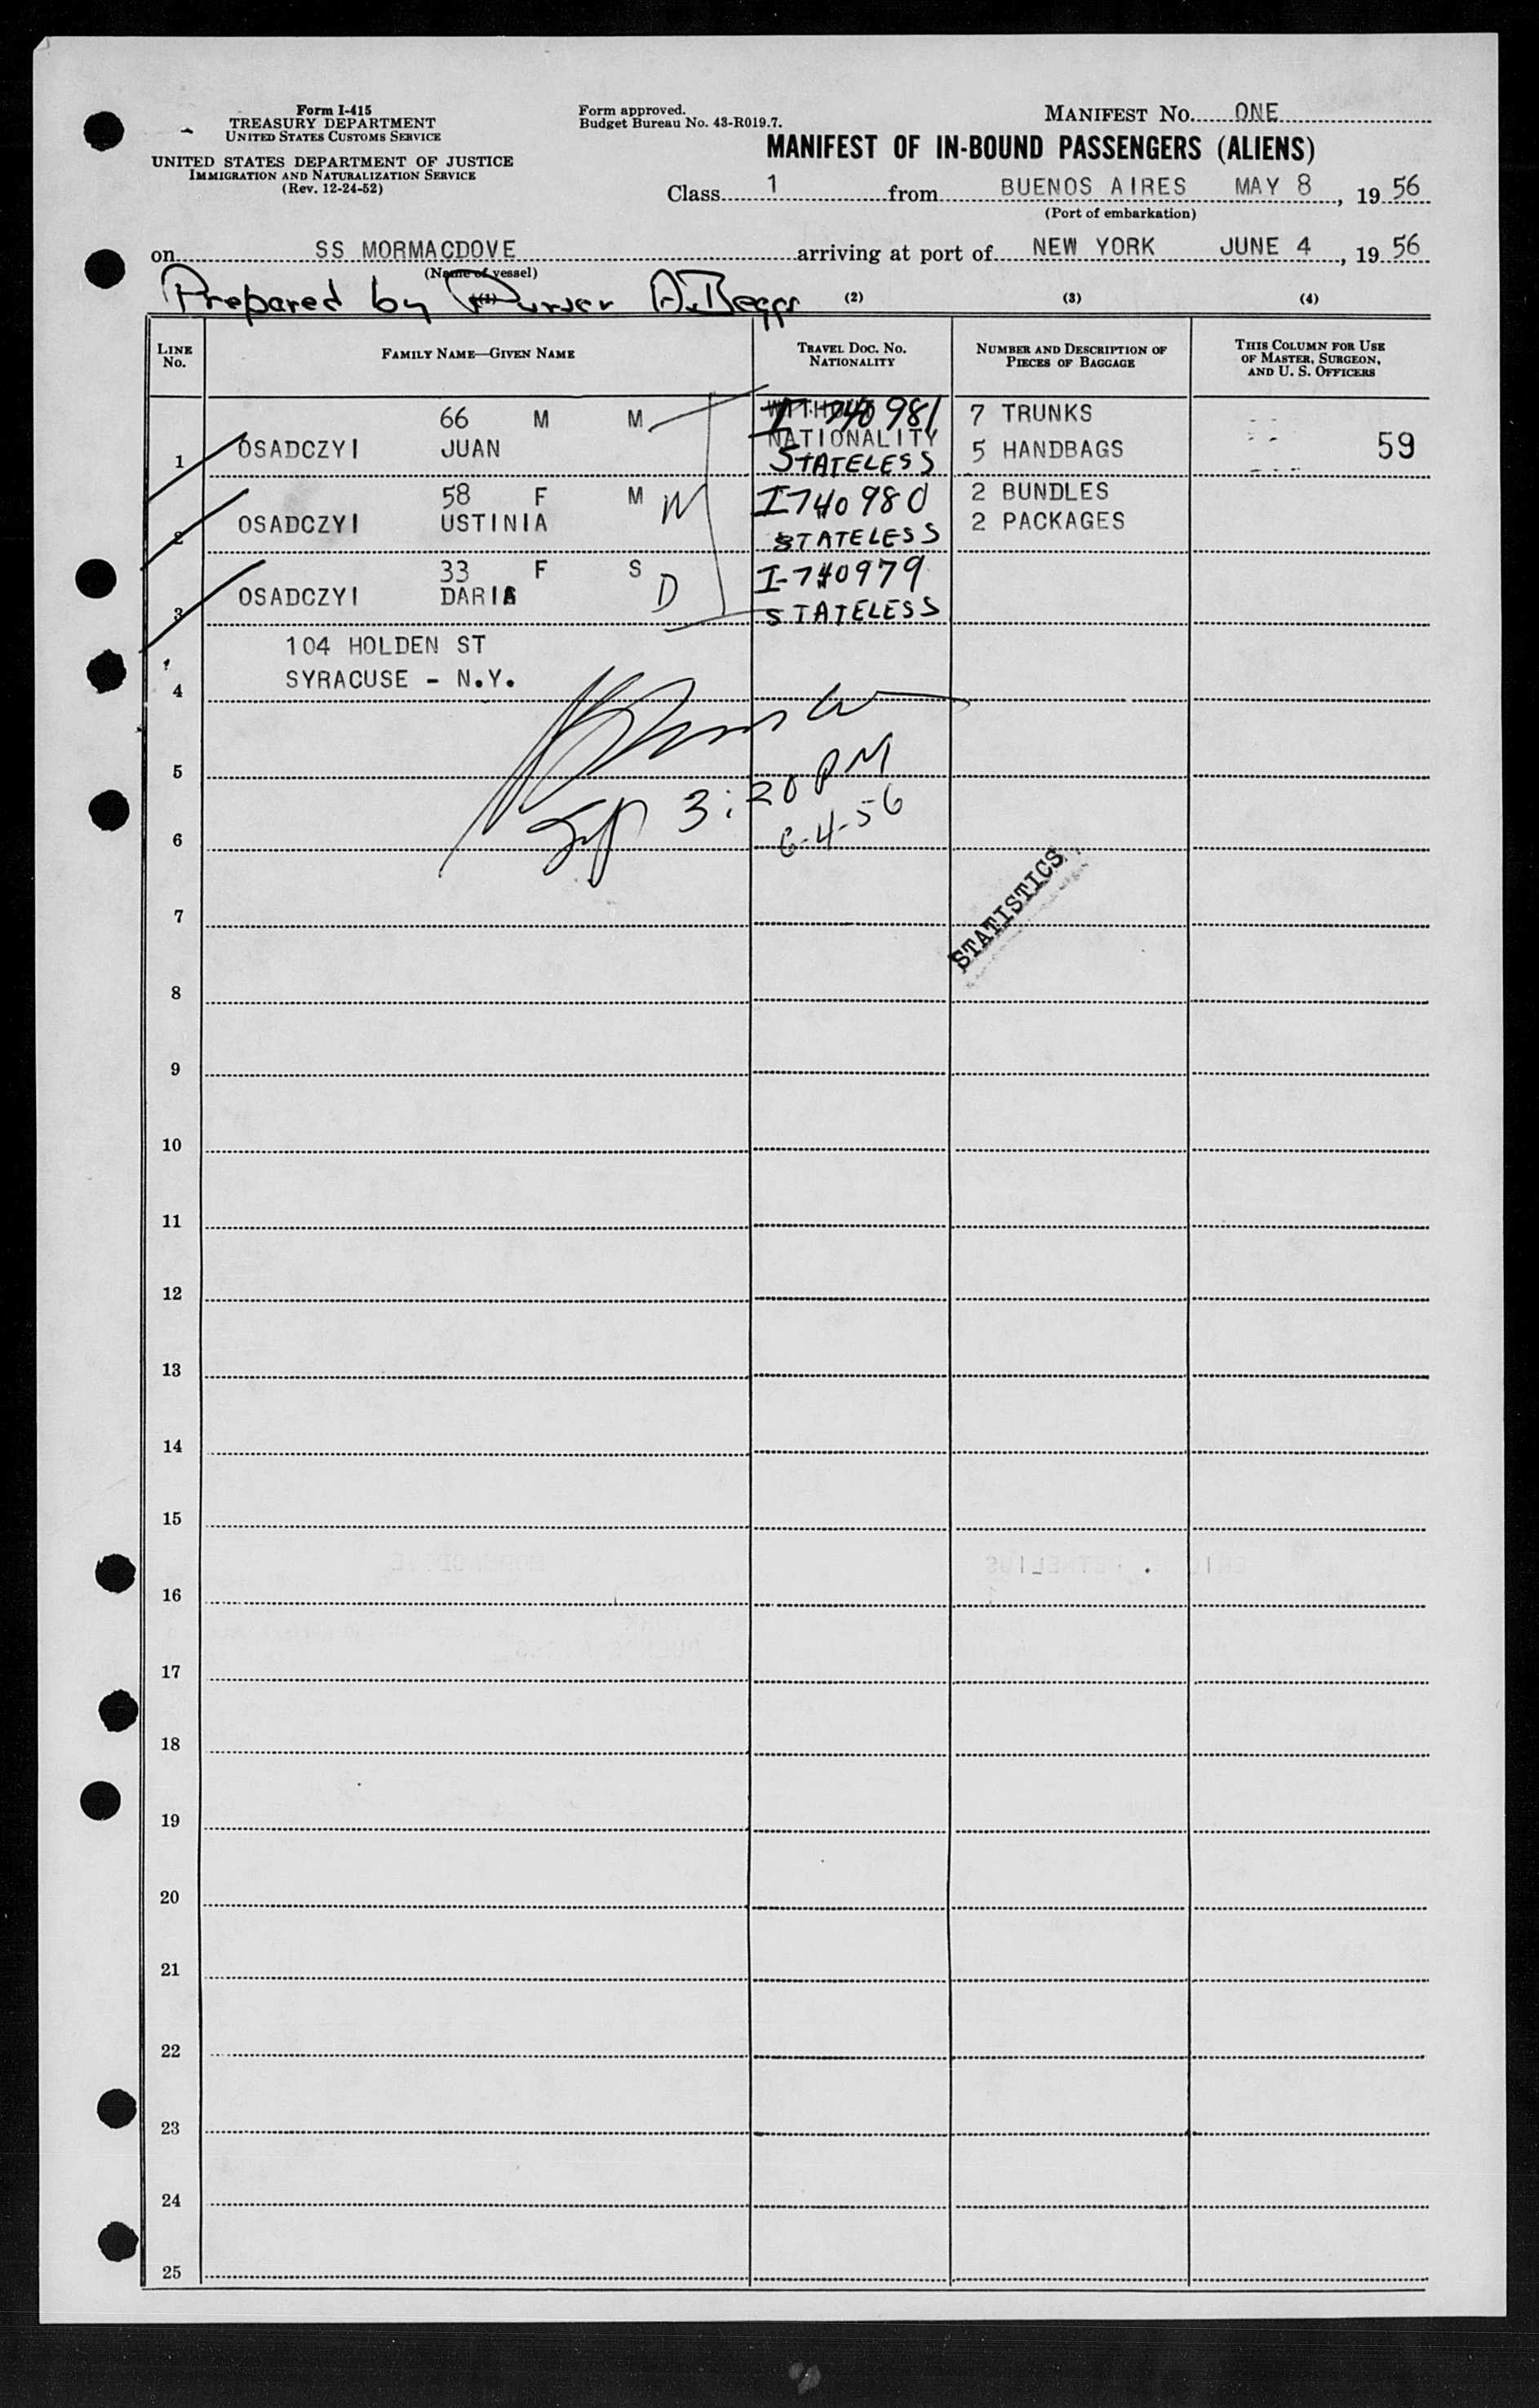 Form I-415
TREASURY DEPARTMENT
UNITED STATES CUSTOMS SERVICE
UNITED STATES DEPARTMENT OF JUSTICE
IMMIGRATION AND NATURALIZATION SERVICE
(Rev. 12-24-52)
Form approved.
Budget Bureau No. 43-R019.7.
MANIFEST No. ONE
MANIFEST OF IN-BOUND PASSENGERS (ALIENS)
Class 1 from BUENOS AIRES MAY 8, 19 56
(Port of embarkation)
on SS MORMACDOVE arriving at port of NEW YORK JUNE 4, 19 56
(Name of vessel)
Prepared by Purser A. Beggs
(1) (2) (3) (4)
LINE No. FAMILY NAME—GIVEN NAME TRAVEL DOC. NO. NATIONALITY NUMBER AND DESCRIPTION OF PIECES OF BAGGAGE THIS COLUMN FOR USE OF MASTER, SURGEON, AND U. S. OFFICERS
66 M M I-740981 7 TRUNKS
NATIONALITY
1 OSADCZYI JUAN STATELESS 5 HANDBAGS 59
58 F M W I740980 2 BUNDLES
2 OSADCZYI USTINIA STATELESS 2 PACKAGES
33 F S D I-740979
3 OSADCZYI DARIA STATELESS
104 HOLDEN ST
4 SYRACUSE - N.Y.
5
3:20 PM
6 6-4-56
STATISTICS
7
8
9
10
11
12
13
14
15
16
17
18
19
20
21
22
23
24
25